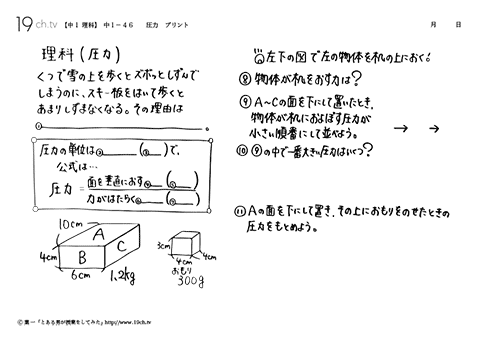 19ch.tv 【中1理科】 中1-46 圧力 プリント 月 日
理科(圧力)
くつで雪の上を歩くとズボッとしずんで
しまうのに、スキー板をはいて歩くと
あまりしずまなくなる。その理由は
①
圧力の単位は② (③ )で、
公式は…
圧力 = 面を垂直におす④ (⑤ )
力がはたらく⑥ (⑦ )
10cm
A
B
C
4cm
6cm
1.2kg
3cm
4cm
4cm
おもり
300g
左下の図で左の物体を机の上におく!
⑧ 物体が机をおす力は?
⑨ A~Cの面を下にして置いたとき、
物体が机におよぼす圧力が
小さい順番にして並べよう。 → →
⑩ ⑨の中で一番大きい圧力はいくつ?
⑪ Aの面を下にして置き、その上におもりをのせたときの
圧力をもとめよう。
© 葉一「とある男が授業をしてみた」http://www.19ch.tv